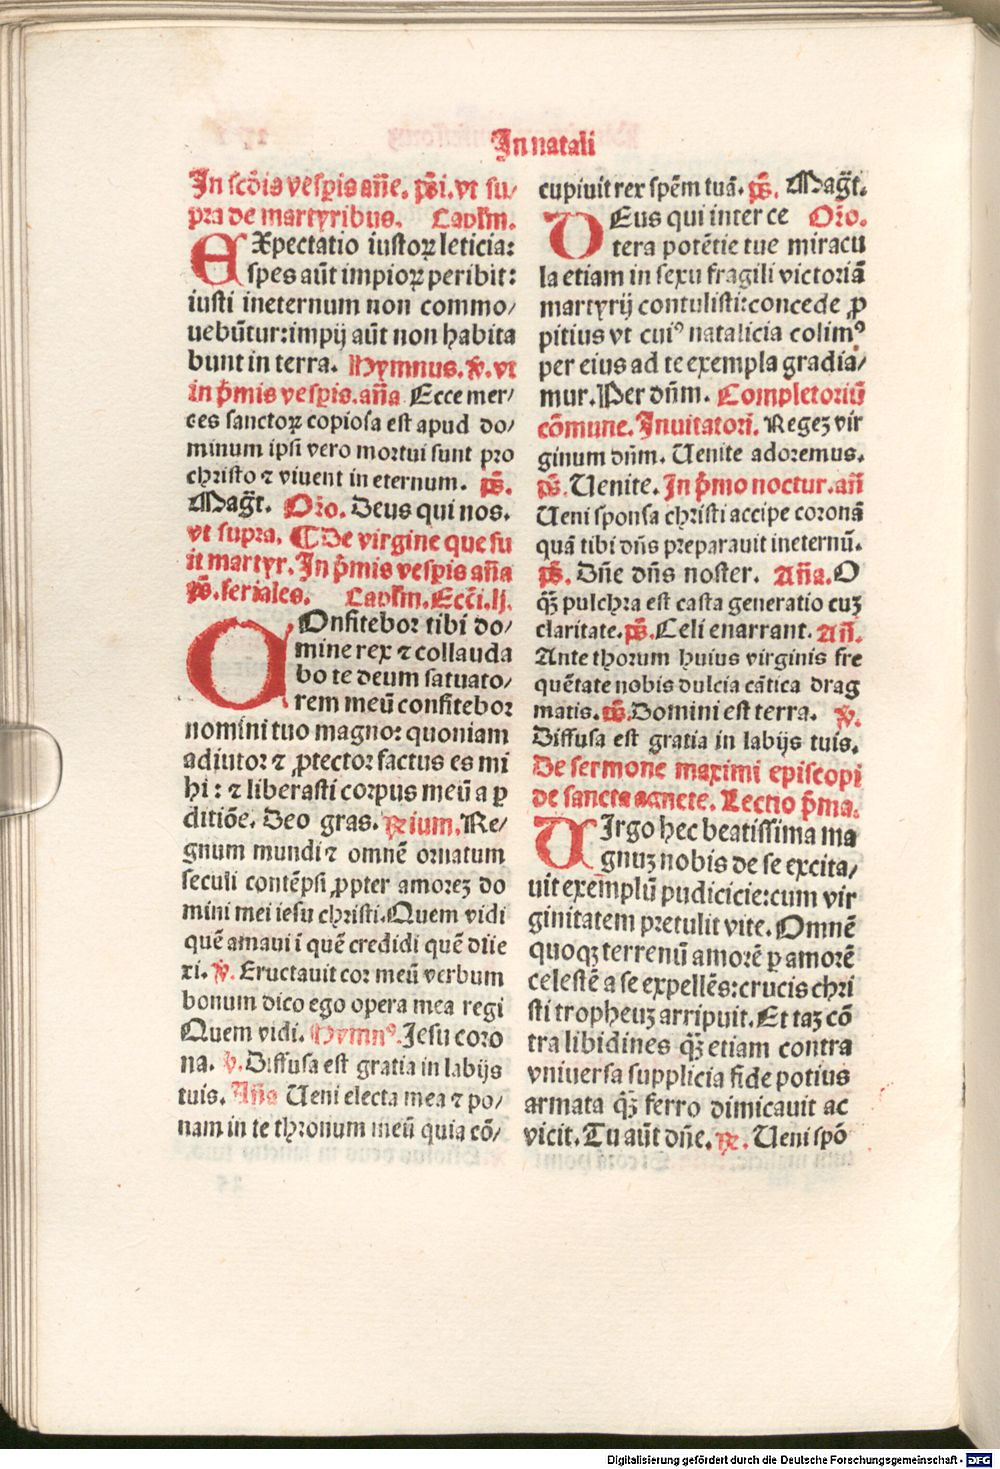 In natali
In scđis vesꝑis añe. ps̄i. vt su/
pra de martyribus. Caplm̄.
EXpectatio iustoꝝ leticia:
spes aūt impioꝝ peribit:
iusti ineternum non commo/
uebūtur:impij aūt non habita
bunt in terra. Hymnus. ꝟ. vt
in p̄mis vesꝑis. aña Ecce mer/
ces sanctoꝝ copiosa est apud do/
minum ipsi vero mortui sunt pro
christo ⁊ viuent in eternum. ps̄.
Magt̄. Oro. Deus qui nos.
vt supra. ¶ De virgine que fu
it martyr. In p̄mis vesꝑis aña
ps̄. feriales. Caplm̄. Ecci. lj.
COnfitebor tibi do/
mine rex ⁊ collauda
bo te deum saluato/
rem meū confitebor
nomini tuo magno: quoniam
adiutor ⁊ ꝓtector factus es mi
hi: ⁊ liberasti corpus meū a ꝑ
ditiōe. Deo gras. Rium. Re/
gnum mundi ⁊ omnē ornatum
seculi contēpsi ꝓpter amorēꝫ do
mini mei iesu christi. Quem vidi
quē amaui ī quē credidi quē dile
xi. ꝟ. Eructauit cor meū verbum
bonum dico ego opera mea regi
Quem vidi. Hymnꝰ. Jesu coro
na. ꝟ. Diffusa est gratia in labijs
tuis. Aña Ueni electa mea ⁊ po/
nam in te thronum meū quia cō/
cupiuit rex spēm tuā. ps̄. Magt̄.
DEus qui inter ce Oro.
tera potētie tue miracu
la etiam in sexu fragili victoriā
martyrij contulisti:concede ꝓ
pitius vt cuiꝰ natalicia colimꝰ
per eius ad te exempla gradia/
mur. Per dn̄m. Completoriū
cōmune. Inuitatori. Regeꝫ vir
ginum dn̄m. Uenite adoremus.
ps̄. Uenite. In p̄mo noctur. añ
Ueni sponsa christi accipe coronā
quā tibi dn̄s preparauit ineternū.
ps̄. Dn̄e dn̄s noster. Aña. O
qꝫ pulchra est casta generatio cuꝫ
claritate. ps̄. Celi enarrant. Añ.
Ante thorum huius virginis fre
quētate nobis dulcia cātica drag
matis. ps̄. Domini est terra. ꝟ.
Diffusa est gratia in labijs tuis.
De sermone maximi episcopi
de sancta agnete. Lectio p̄ma.
UIrgo hec beatissima ma
gnuꝫ nobis de se excita/
uit exemplū pudicicie:cum vir
ginitatem pretulit vite. Omnē
quoqꝫ terrenū amorē ꝑ amorē
celestē a se expellēs:crucis chri
sti tropheuꝫ arripuit. Et taꝫ cō
tra libidines qꝫ etiam contra
vniuersa supplicia fide potius
armata qꝫ ferro dimicauit ac
vicit. Tu aūt dn̄e. ℟. Ueni spō
Digitalisierung gefördert durch die Deutsche Forschungsgemeinschaft - DFG